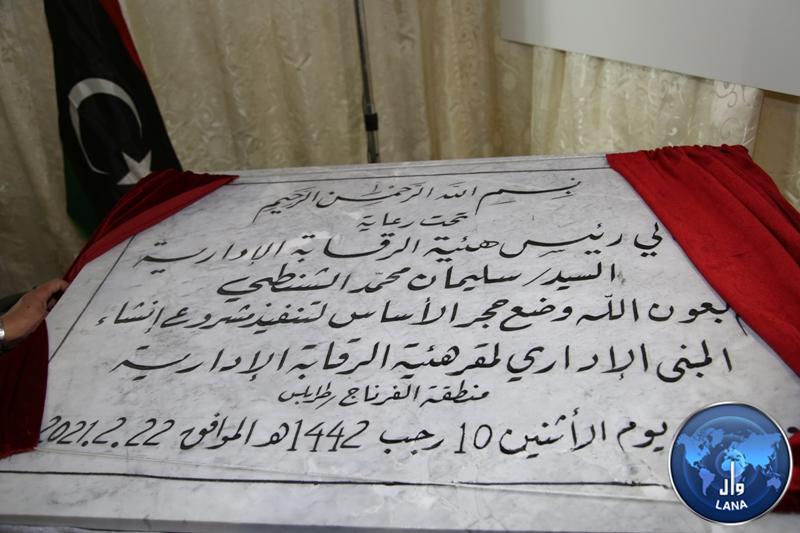 بسم الله الرحمن الرحيم
تحت رعاية
لي رئيس هيئة الرقابة الإدارية
السيد/ سليمان محمد الشنطي
بعون الله وضع حجر الأساس لتنفيذ مشروع إنشاء
المبنى الإداري لمقر هيئة الرقابة الإدارية
منطقة الفرناج / طرابلس
يوم الأثنين 10 رجب 1442هـ الموافق 2021.2.22
وال
LANA